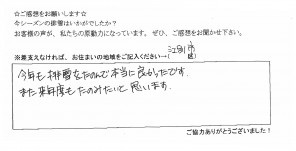 ☆ご感想をお願いします☆
今シーズンの排雪はいかがでしたか？
お客様の声が、私たちの原動力になっています。ぜひ、ご感想をお聞かせ下さい。
※差支えなければ、お住まいの地域をご記入ください→（江別市区）
今年も排雪をたのんで本当に良かったです。
また来年度もたのみたいと思います。
ご協力ありがとうございました！